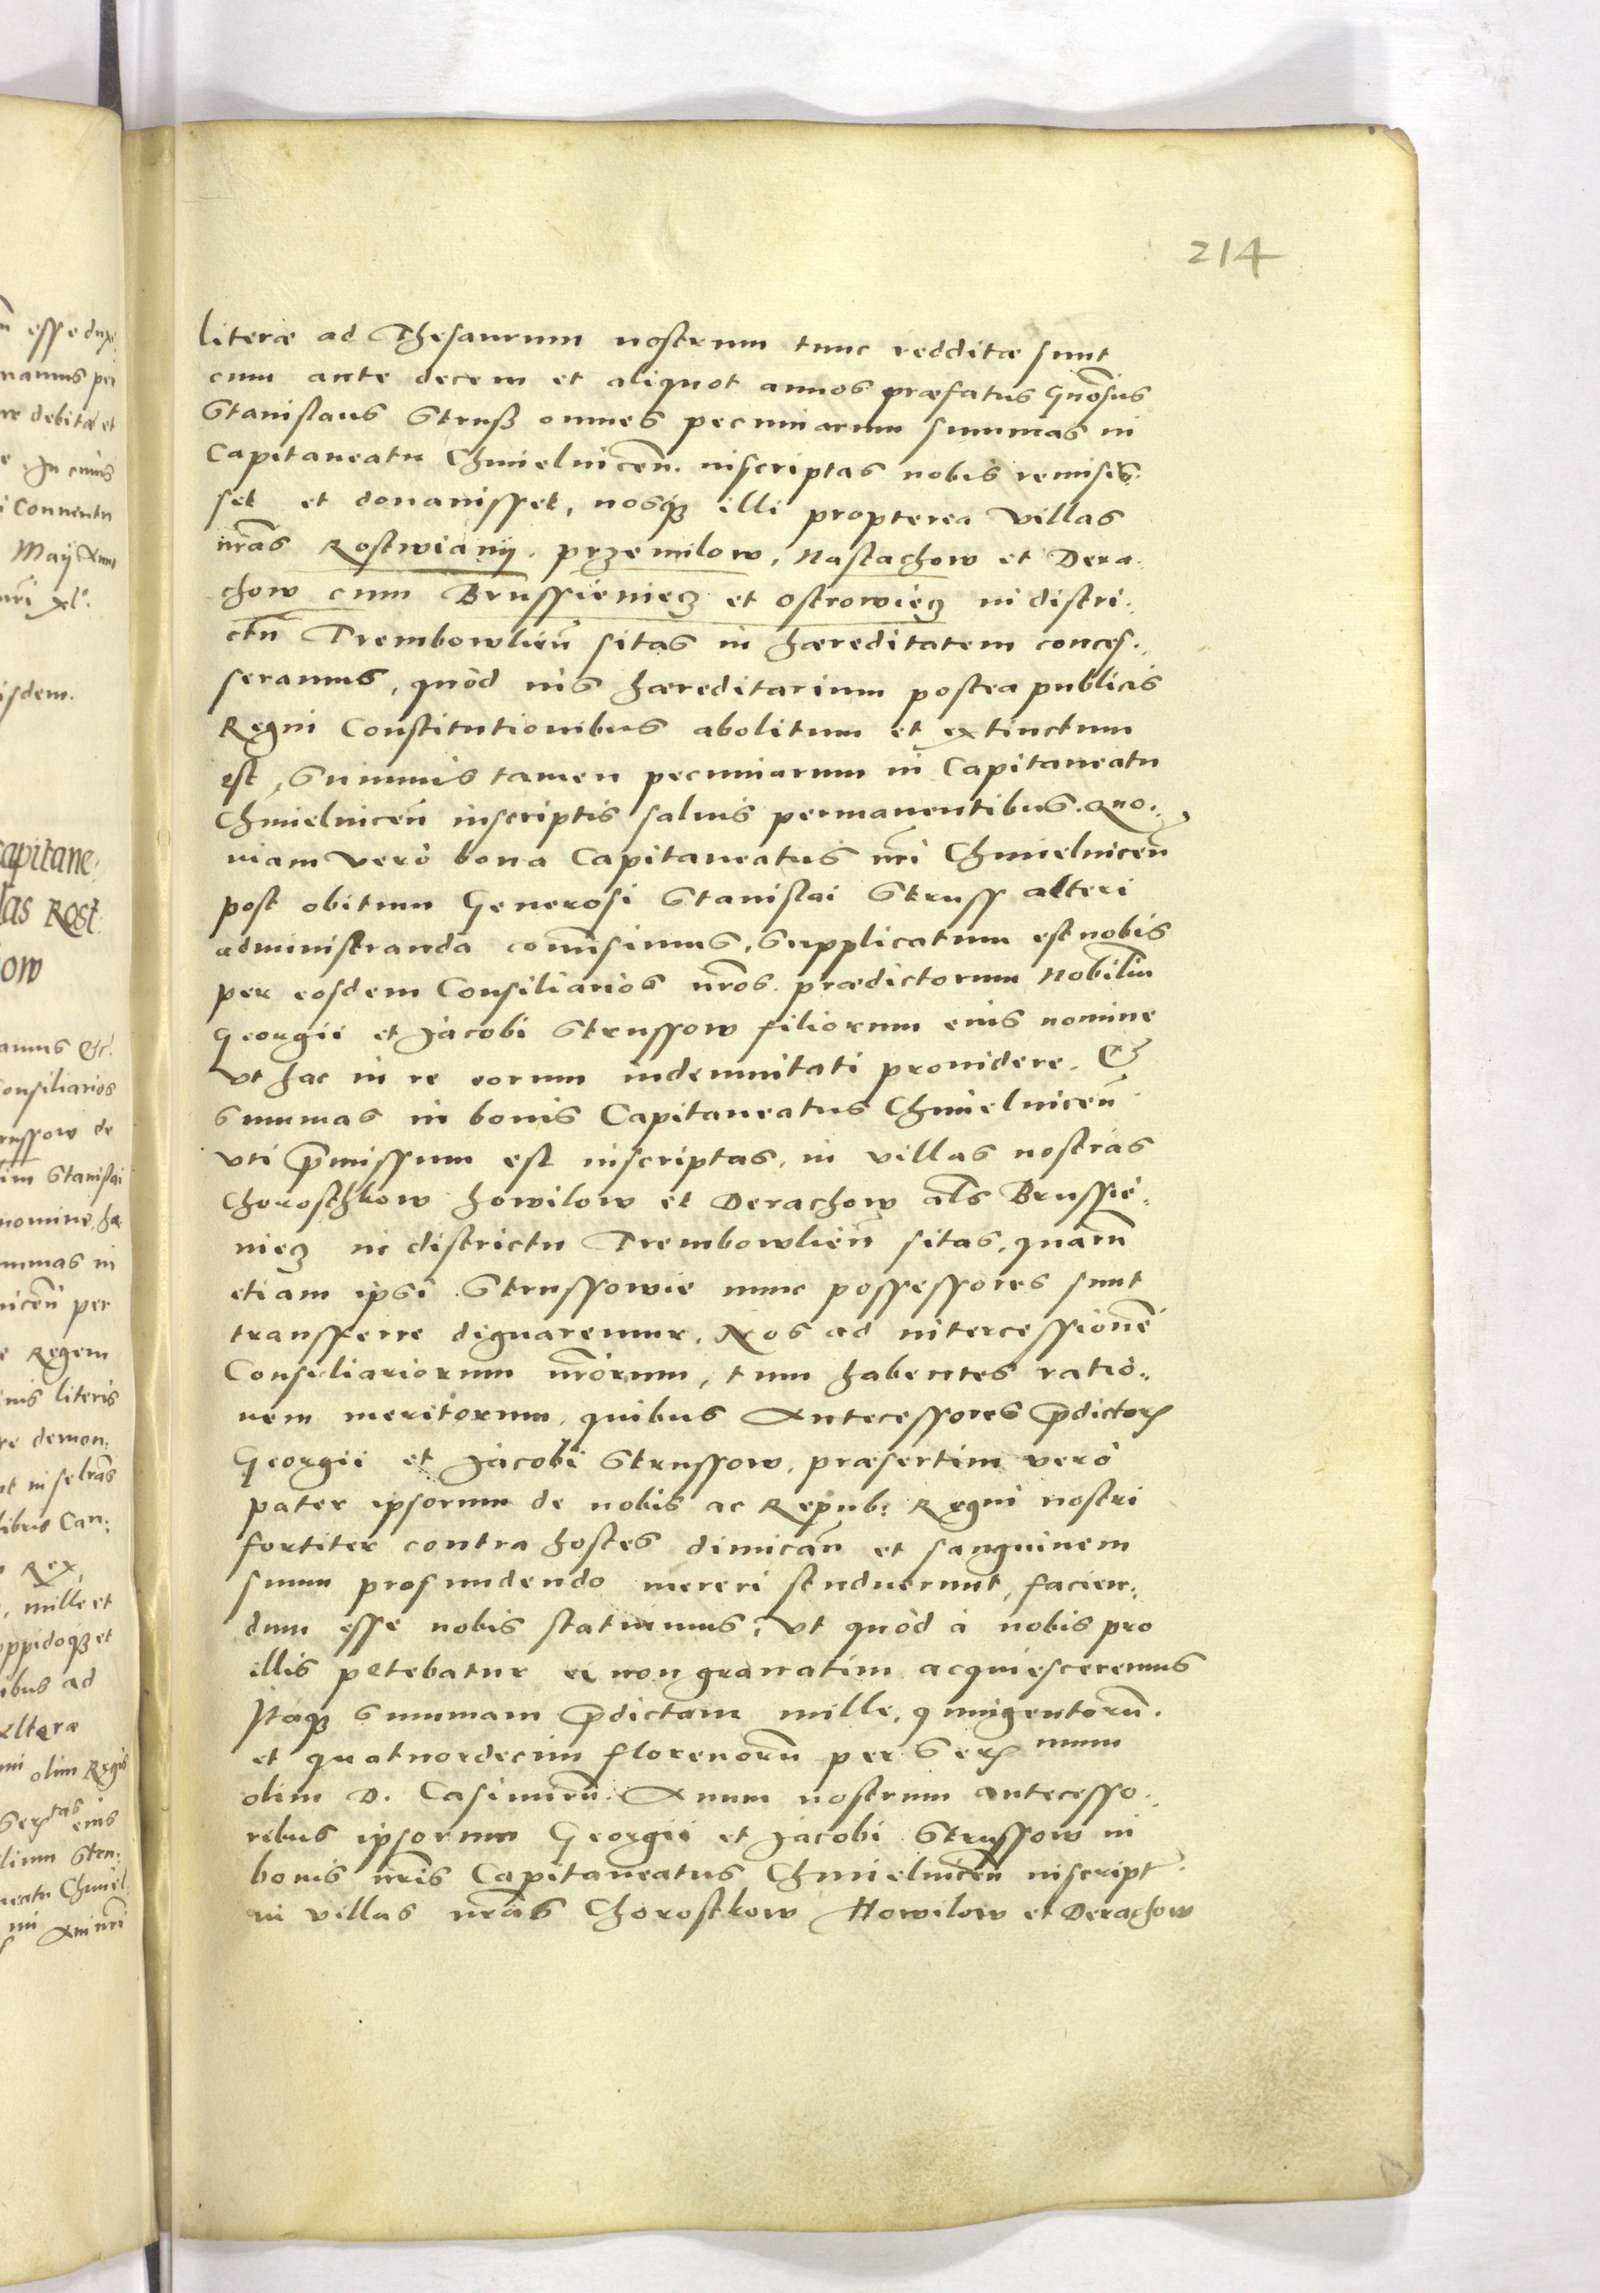 214
literæ ad Thesaurum nostrum tunc redditæ sunt
cum ante decem et aliquot annos præfatus Gnõsus
Stanislaus Struß omnes pecuniarum summas in
Capitaneatu Chmielnicen̄. inscriptas nobis remisis-
set et donauisset, nosq̃ illi propterea villas
nr̃as Rostwianij. przemilow, Nastachow et Dera-
chow cum Brussieniecz et ostrowiecz in distri-
ctu Trembowlien̄ sitas in hæreditatem conces-
seramus, quòd ius hæreditarium postea publicis
Regni Constitutionibus abolitum et extinctum
est, Summis tamen pecuniarum in Capitaneatu
Chmielnicen̄ inscriptis saluis permanentibus. Quo-
niam verò bona Capitaneatus nr̃i Chmielnicen̄
post obitum Generosi Stanislai Struss alteri
administranda com̃isimus, Supplicatum est nobis
per eosdem Consiliarios nr̃os. prædictorum Nobiliũ
Georgii et Jacobi Strussow filiorum eius nomine
vt hac in re eorum indemnitati prouidere. Et
Summas in bonis Capitaneatus Chmielnicen̄
vti p̃missum est inscriptas, in villas nostras
Choroschkow howilow et Derachow al̃s Brussie-
niecz in districtu Trembowlien̄ sitas, quarũ
etiam ipsi Strussowie nunc possessores sunt
transferre dignaremur. Nos ad intercessionẽ
Consiliariorum nr̃orum, tum habentes ratio-
nem meritorum, quibus Antecessores p̃dictorꝝ
Georgii et Jacobi Strussow, præsertim verò
pater ipsorum de nobis ac Repub: Regni nostri
fortiter contra hostes dimican̄ et sanguinem
suum profundendo mereri studuerunt, facien-
dum esse nobis statuimus, vt quòd à nobis pro
illis petebatur ei non grauatim acquiesceremus
Itaq̃ Summam p̃dictam mille, quingentorũ.
et quatuordecim florenorũ per Serꝝ mum
olim D. Casimirũ. Auum nostrum antecesso-
ribus ipsorum Georgii et Jacobi Strussow in
bonis nr̃is Capitaneatus Chmielnicen̄ inscript
in villas nr̃as Chorostkow Howilow et Derachow